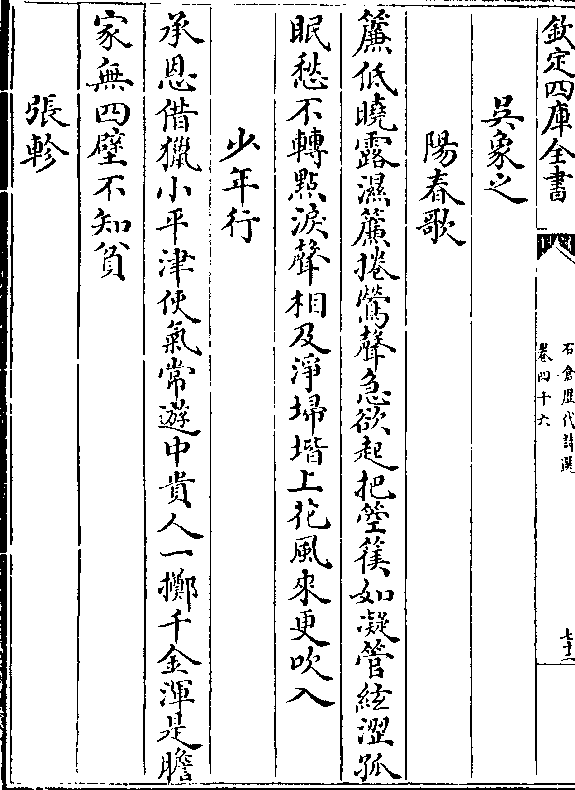 欽定四庫全書
石倉歷代詩選
卷四十六
七十二
吳象之
陽春歌
簾低曉露濕簾捲鶯聲急欲起把箜篌如凝管絃澀孤
眠愁不轉點淚聲相及淨掃堦上花風來更吹入
少年行
承恩借獵小平津使氣常遊中貴人一擲千金渾是膽
家無四壁不知貧
張軫